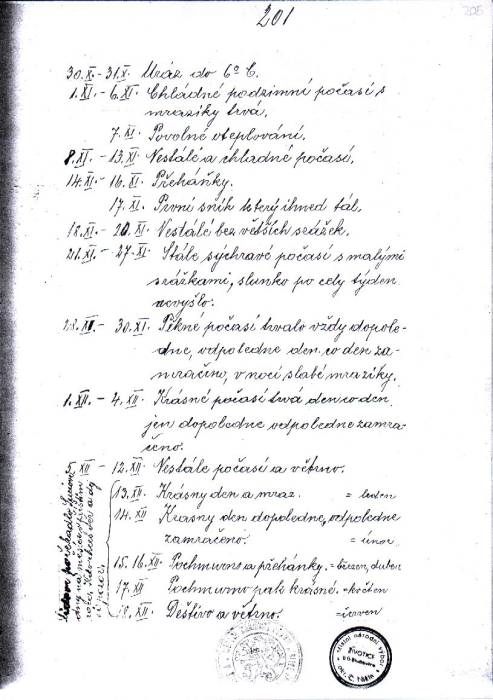 201
205
30.X.- 31.X. Mráz do 6° C.
1.XI.- 6.XI. Chládné podzimní počasí s
mrazíky trvá.
7.XI. Povolné oteplování.
8.XI.- 13.XI. Nestálé a chladné počasí,
14.XI.- 16.XI. Přeháňky.
17.XI. První sníh který ihned tál.
18.XI.- 20.XI. Nestálé bez větších srážek.
21.XI.- 27.XI. Stále sychravé počasí s malými
srážkami, slunko po celý týden
nevyšlo.
28.XI.- 30.XI. Pěkné počasí trvalo vždy dopole-
dne, odpoledne den co den za-
mračeno, v noci slabé mrazíky.
1.XII.- 4.XII. Krásné počasí trvá den co den
jen dopoledne odpoledne zamra-
čeno.
5.XII- 12.XII Nestále počasí a větrno.
13.XII. Krásny den a mraz. = leden
14.XII Krasny den dopoledne, odpoledne
zamračeno. = únor
15.16.XII. Pochmurno a přehánky. = březen, duben
17.XII Pochmurno pak krásně. = květen
18.XII. Deštivo a větrno. = červen
místní národní výbor
ŽIVOTICE